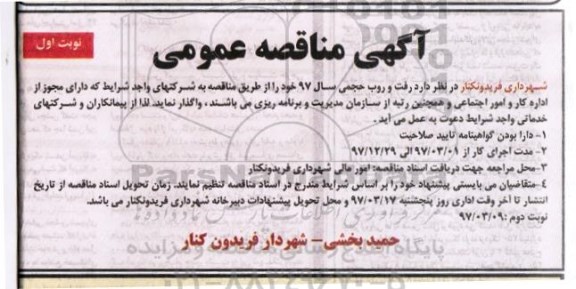 نوبت اول
آگهی مناقصه عمومی
شهرداری فریدونکنار در نظر دارد رفت و روب حجمی سال ۹۷ خود را از طریق مناقصه به شرکتهای واجد شرایط که دارای مجوز از
اداره کار و امور اجتماعی و همچنین رتبه از سازمان مدیریت و برنامه ریزی می باشند ، واگذار نماید. لذا از پیمانکاران و شرکتهای
خدماتی واجد شرایط دعوت به عمل می آید .
۱- دارا بودن گواهینامه تایید صلاحیت
۲- مدت اجرای کار از ۹۷/۰۳/۰۱ الی ۹۷/۱۲/۲۹
۳-محل مراجعه جهت دریافت اسناد مناقصه: امور مالی شهرداری فریدونکنار
۴-متقاضیان می بایستی پیشنهاد خود را بر اساس شرایط مندرج در اسناد مناقصه تنظیم نمایند. زمان تحویل اسناد مناقصه از تاریخ
انتشار تا آخر وقت اداری روز پنجشنبه ۹۷/۰۳/۱۷ و محل تحویل پیشنهادات دبیرخانه شهرداری فریدونکنار می باشد.
نوبت دوم :۹۷/۰۳/۰۹
حمید بخشی- شهردار فریدون کنار